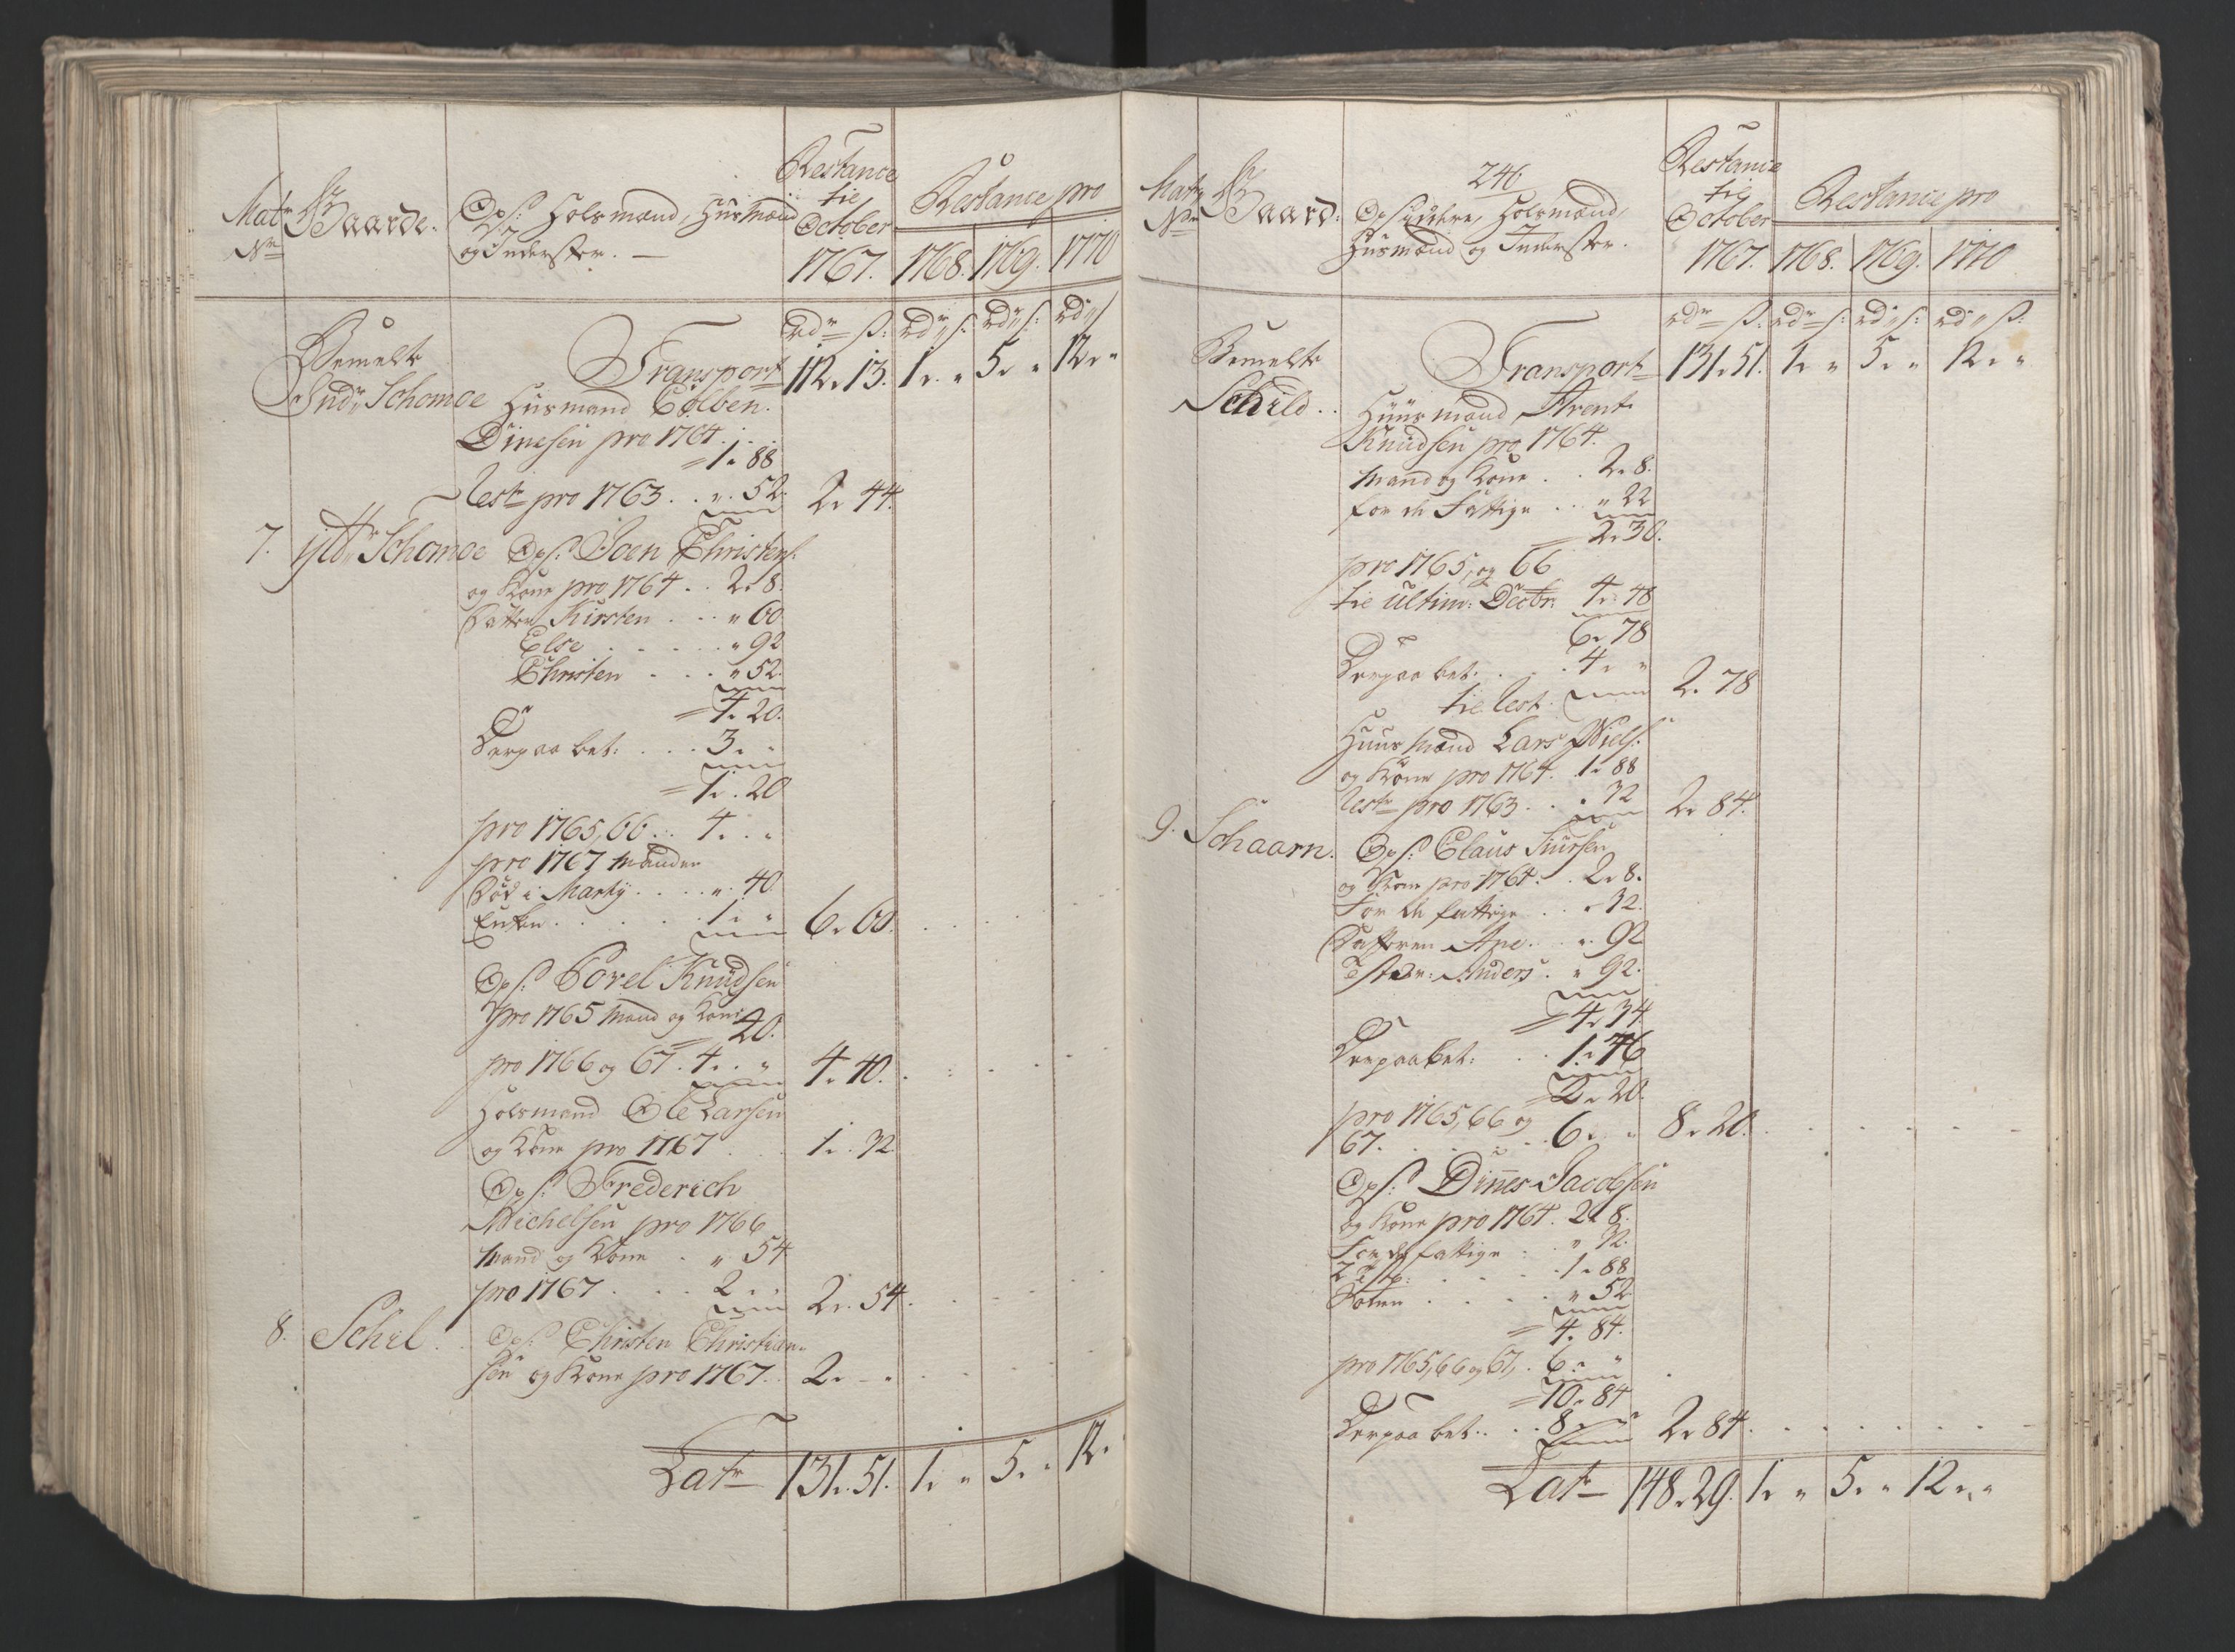 Matr Gaarde. Ops: Holsmænd, Huusmænd Restance Restance pro
Nr og Inderster. — til
October
1767. 1768. 1769. 1770
rdr ß: rdr ß: rd ß: rd ß
Bemelte Transport 112. 13. 1. " 5. " 12. "
Indr Schomoe Husmand Colben
Dinesen pro 1764 . .
1. 88
Rest pro 1763 . . ". 52. 2. 44.
7. ytr Schomoe Ops: Joen Christens:
og Kone pro 1764 . . 2. 8.
Datter Kirsten . . . " 60
Else . . . . . " 92
Christen . . . " 52.
4. 20.
Derpaa bet: . . . 3. "
1. 20
pro 1765, 66 . . 4. . "
pro 1767 Manden
død i Marty . . . . ". 40
Enken . . . . . 1. " 6. 60.
Ops: Povel Knudsen
pro 1765 Mand og Kone
40.
pro 1766 og 67. 4. . " 4. 40.
Holsmand Ole Larsen
og Kone pro 1767 . . 1. 32
Ops: Frederich
Michelsen pro 1766
Mand og Kone . " 54
pro 1767 . . . 2 . . 2. 54.
8. Schel. Ops: Christen Christian-
sen og Kone pro 1767. 2. - "
Latr 131. 51. 1. " 5. " 12.
246
Matr Gaard. Opsiddere, Holsmænd, Restance Restance pro
Nr Husmænd og Inderster. til
October
1767. 1768. 1769. 1770
rdr ß: rdr ß: rd ß: rd ß:
Bemelte Transport 131. 51. 1. " 5. " 12. "
Schild . . Huusmand Arent
Knudsen pro 1764.
Mand og Kone . . 2. 8.
for de Fattige . . . " 22
2. 30.
pro 1765, og 66
til ultim: Decbr: 4. 48
6. 78
Derpaa bet: . . . 4. "
til Rest. 2. 78
Huusmand Lars Niels:
og Kone pro 1764. 1. 88
Rest pro 1763 . . " 92 2. 84.
9. Schaarn. Ops: Claus Siursen
og Kone pro 1764. . 2. 8.
For de fattige . . " 32.
Datteren Ane. . ". 92
Tste: Anders . " 92.
4. 34
Derpaa bet: . . 1. 46
2. 20.
pro 1765, 66 og
67. . . . . . 6. " 8. 20.
Ops: Dines Jacobsen
og Kone pro 1764. 2. 8.
For de fattige . . " 32.
2 Tst: . . . . 1. 88
. . . . " 52
4. 84.
pro 1765, 66 og 67, . 6. "
10. 84
Derpaa bet . . . 8. " 2. 84.
Latr 148. 29. 1. " 5. " 12. "